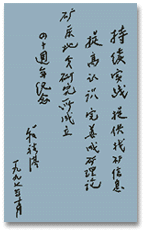 持续实践 提供找矿信息
提高认识 完善成矿理论
矿床地质研究所成立
四十周年纪念
一九九七年十月